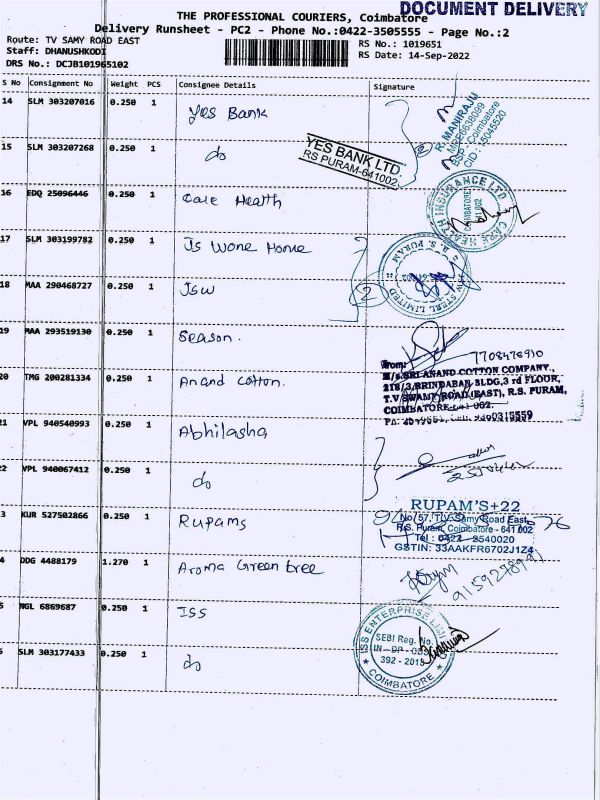 DOCUMENT DELIVERY
THE PROFESSIONAL COURIERS, Coimbatore
Delivery Runsheet - PC2 - Phone No.:0422-3505555 - Page No.:2
Route: TV SAMY ROAD EAST
RS No.: 1019651
Staff: DHANUSHKODI
RS Date: 14-Sep-2022
DRS No.: DCJB101965102
S No Consignment No Weight PCS Consignee Details Signature
14 SLM 303207016 0.250 1 Yes Bank
R. MANIRAJU
BSP - Coimbatore
15 SLM 303207268 0.250 1 do
YES BANK LTD.
RS PURAM-641002
16 EDQ 25096446 0.250 1 Care Health
CARE HEALTH INSURANCE LTD
COIMBATORE
641 002
17 SLM 303199782 0.250 1 Js Wone Home
18 MAA 290468727 0.250 1 Jsw
2
STEEL LIMITED
R. S. PURAM
19 MAA 293519130 0.250 1 Season.
7708478910
20 TMG 200281334 0.250 1 Anand Cotton.
From:
M/s. SRI ANAND COTTON COMPANY.,
218/3, BRINDABAN BLDG, 3 rd FLOOR,
T.V SWAMY ROAD (EAST), R.S. PURAM,
COIMBATORE-641 002.
21 VPL 940540993 0.250 1 Abhilasha
22 VPL 940067412 0.250 1 do
3 KUR 527502866 0.250 1 Rupams
RUPAM'S+22
No. 57, T.V. Samy Road East,
R.S. Puram, Coimbatore - 641 002
Tel : 0422 - 2540020
GSTIN: 33AAKFR6702J1Z4
4 DDG 4488179 1.270 1 Aroma Green tree
5 NGL 6869687 0.250 1 ISS
ISS ENTERPRISE LIMITED
SEBI Reg. No.
IN - DP - CDSL
392 - 2018
COIMBATORE
SLM 303177433 0.250 1 do